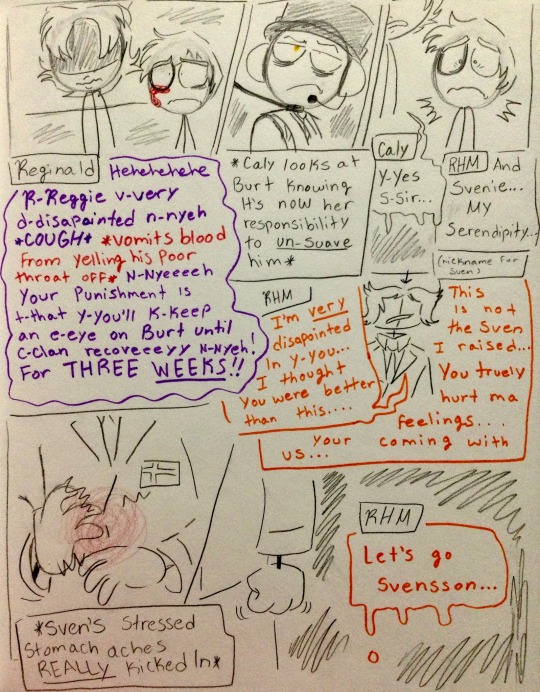 Reginald
Hehehehehe
R-Reggie v-very
d-disapainted n-nyeh
*COUGH* *vomits blood
From yelling his Poor
throat off* N-Nyeeeeh
Your Punishment is
t-that y-you'll K-keep
an e-eye on Burt until
C-Clan recoveeeyy N-Nyeh!
For THREE WEEKS!!
*Caly looks at
Burt Knowing
It's now her
responsibility
to un-suave
him*
Caly
Y-Yes
S-Sir...
RHM And
Svenie...
My
Serendipity..
(nickname for
Sven)
RHM
I'm very
disapointed
In y-you...
I thought
You were better
than this....
This
is not
the Sven
I raised...
You truely
hurt ma
feelings....
your coming with
us...
*Sven's Stressed
Stomach aches
REALLY Kicked In*
RHM
Let's go
Svensson...